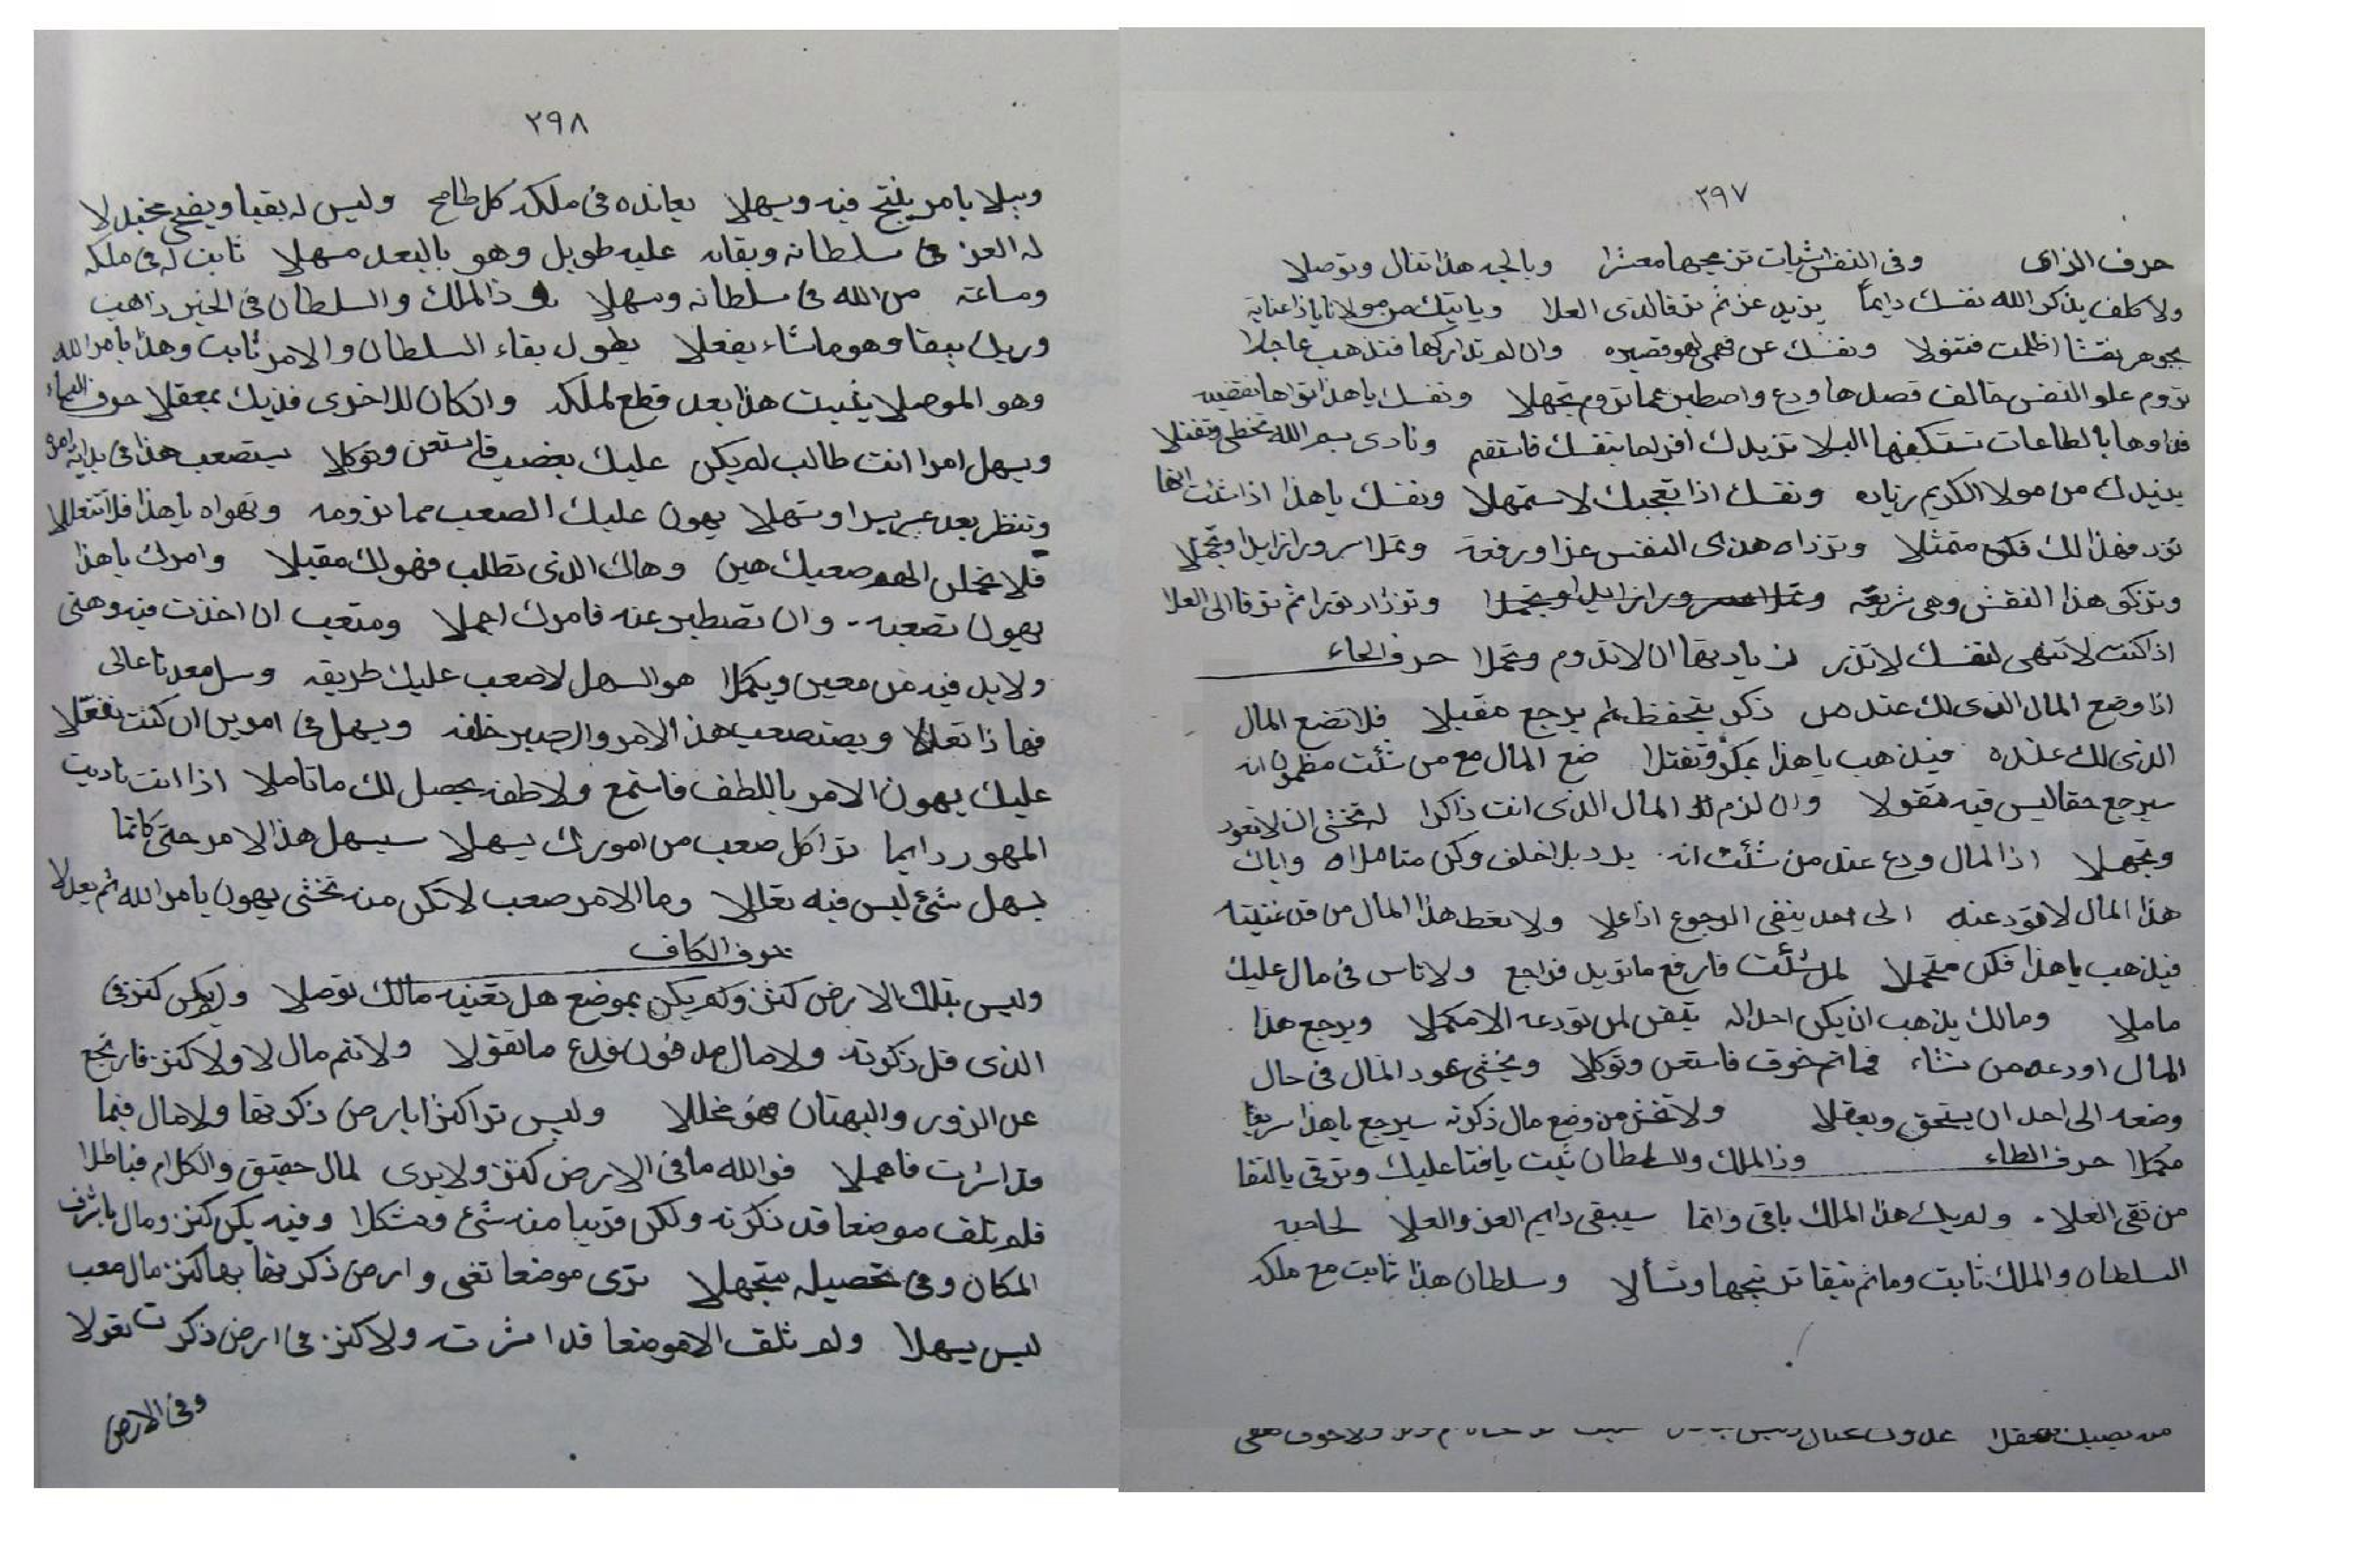 ٢٩٧
حرف الزاى وفى النفس ثبات تزعجها معشرا وبالجد هذا تنال وتوصلا
ولا كلف يذكر الله نفسك دايما يزيد عز ثم ترقا لذى العلا وياتيك من مولانا ياذا عناية
بجوهر نفسا اظلمت فتنولا ونفسك عن فهمى لهو قصيره وان لم تداركها فتذهب عاجلا
تروم علو النفس خالف فصلها ودع واصطبر عما تروم تجهلا ونفسك ياهذا تراها نقضيه
فداوها بالطاعات تستكفها البلا تزيدك افراحا بنفسك فاستقم ونادى بسم الله تحظى وتقتلا
يزيدك من مولا الكريم زياده ونفسك اذا تعجبك لا ستمهلا ونفسك ياهذا اذا شئت انها
تزد فهذا لك فكن متمثلا وتزداه هذى النفس عزا ورفعة وتملا سرورا زايدا وتجملا
وتزكو هذا النفس وهى شريفه وتزداد نورا ثم ترقا الى العلا
اذا كنت لا تنهى لنفسك لا تذر زيادتها ان لا تدوم وتحملا حرف الحاء
اذا وضع المال الذى لك عند من ذكر يتحفظ لم يرجع مقبلا فلا تضع المال
الذى لك عنده فيذهب ياهذا بمكر وتفتلا ضع المال مع من شئت مظمون انه
سيرجع حقا ليس فيه تقولا وان لزم لك المال الذى انت ذاكرا له تخشى ان لا تعود
وتجهلا اذا المال ودع عند من شئت انه يرد بلا خلف وكن متاملا وياك
هذا المال لا تودعنه الى احد ينفى الرجوع اذا علا ولا تعط هذا المال من قد عنيته
فيذهب ياهذا فكن متحملا لمن شئت فارفع ما تريد فراجع ولا تاس فى مال عليك
ماملا ومالك يذهب ان يكن احد اله يتقن لمن تودعه الامكملا ويرجع هذا
المال اودعه من تشاء فما ثم خوف فاستعن وتوكلا ويخشى عود المال فى حال
وضعه الى احد ان يستحق ويعقلا ولا تخش من وضع مال ذكرته سيرجع ياهذا سريعا
مكملا حرف الطاء وذا الملك والسلطان ثبت يافتا عليك وترقى بالتقا
من تقى العلا ولم يك هذا الملك باقى وانما سيبقى دايم العز والعلا لصاحبه
السلطان والملك ثابت وما ثم تبقا ترتجها وتسألا وسلطان هذا ثابت مع ملكه
٢٩٨
ويبلا بامر ينتج فيه ويسهلا يعانده فى ملكه كل طامح وليس له بقيا ويضحى مخبلا
له العز فى سلطانه وبقاه عليه طويل وهو بالبعد مسهلا ثابت له فى ملكه
وساعته من الله فى سلطانه وسهلا وذا الملك والسلطان فى الخير ذاهب
وربك يبقا وهو ما شاء يفعلا يطول بقاء السلطان والامر ثابت وهذا بامر الله
وهو الموصلا يثبت هذا بعد قطع لملكه وان كان للاخرى فذيك بمعقلا حرف الياء
ويسهل امرا انت طالب لم يكن عليك بغضب فاستعن وتوكلا يستصعب هذا فى بدايه امر
وتنظر بعد عسر يسرا وتسهلا يهون عليك الصعب مما ترومه وتهواه ياهذا فلا تتعللا
فلا تحملن الهم صعبك هين وهاك الذى تطلب فهو لك مقبلا وامرك ياهذا
يهون تصعبه وان تصطبر عنه فامرك اجملا ومتعب ان اخذت فيه وهنى
ولابد فيه من معين ويكملا هو السهل لا صعب عليك طريقه وسل معدنا عالى
فهاذا تعللا ويصتصعب هذ الامر والصبر خلفه ويسهل فى امرين ان كنت تفعلا
عليك يهون الامر باللطف فاستمع ولاطفه يحصل لك ما تاملا اذا انت ناديت
المهور دايما ترا كل صعب من امورك يسهلا سيسهل هذا الامر حتى كانما
يسهل شئ ليس فيه تعاللا وما الامر صعب لا تكن منه تخشى يهون بامر الله ثم يعدلا
حرف الكاف
وليس بتلك الارض كنز ولم يكن بموضع هل تعنيه مالك توصلا ولم يكن كنز فى
الذى قد ذكرته ولا مال مدفون فدع ما تقولا ولا ثم مال لا ولا كنز فارتجع
عن الزور والبهتان فهو مخللا وليس ترا كنزا بارض ذكرتها ولا مال فيما
قد اشرت فاهملا فوالله ما فى الارض كنز ولا يرى لمال حقيق والكلام فباطلا
فلم تلف موضعا قد ذكرته ولكن قريبا منه شئ ومشكلا وفيه يكن كنز ومال باشرف
المكان وفى تحصيله متجهلا ترى موضعا تعنى وارض ذكرتها بها كنز مال صعب
ليس يسهلا ولم تلق الا موضعا قد اشرته ولا كنز فى ارض ذكرت تقولا
وفى الارض